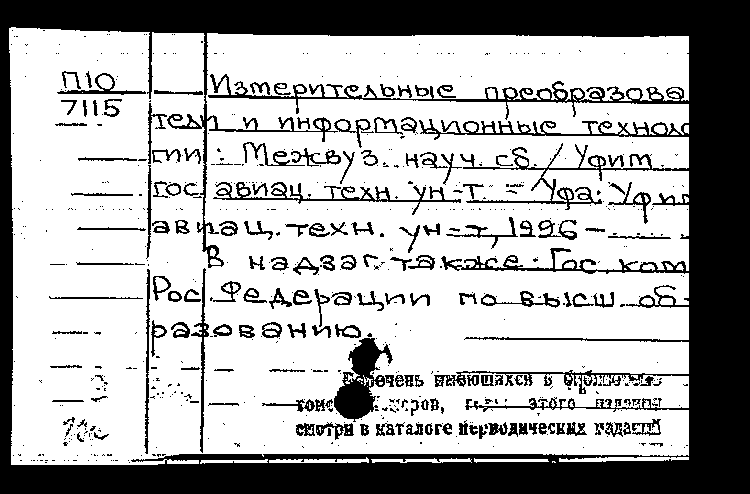 П10
7115
Измерительные преобразова
тели и информационные техноло
гии : Межвуз. науч. сб. / Уфим.
гос авиац. техн. ун-т. = Уфа: Уфим
авиац. техн. ун-т, 1996 –
В надзаг. также: Гос. ком
Рос. Федерации по высш. об-
разованию.
имеющихся в
этого издания
смотри в каталоге периодических изданий